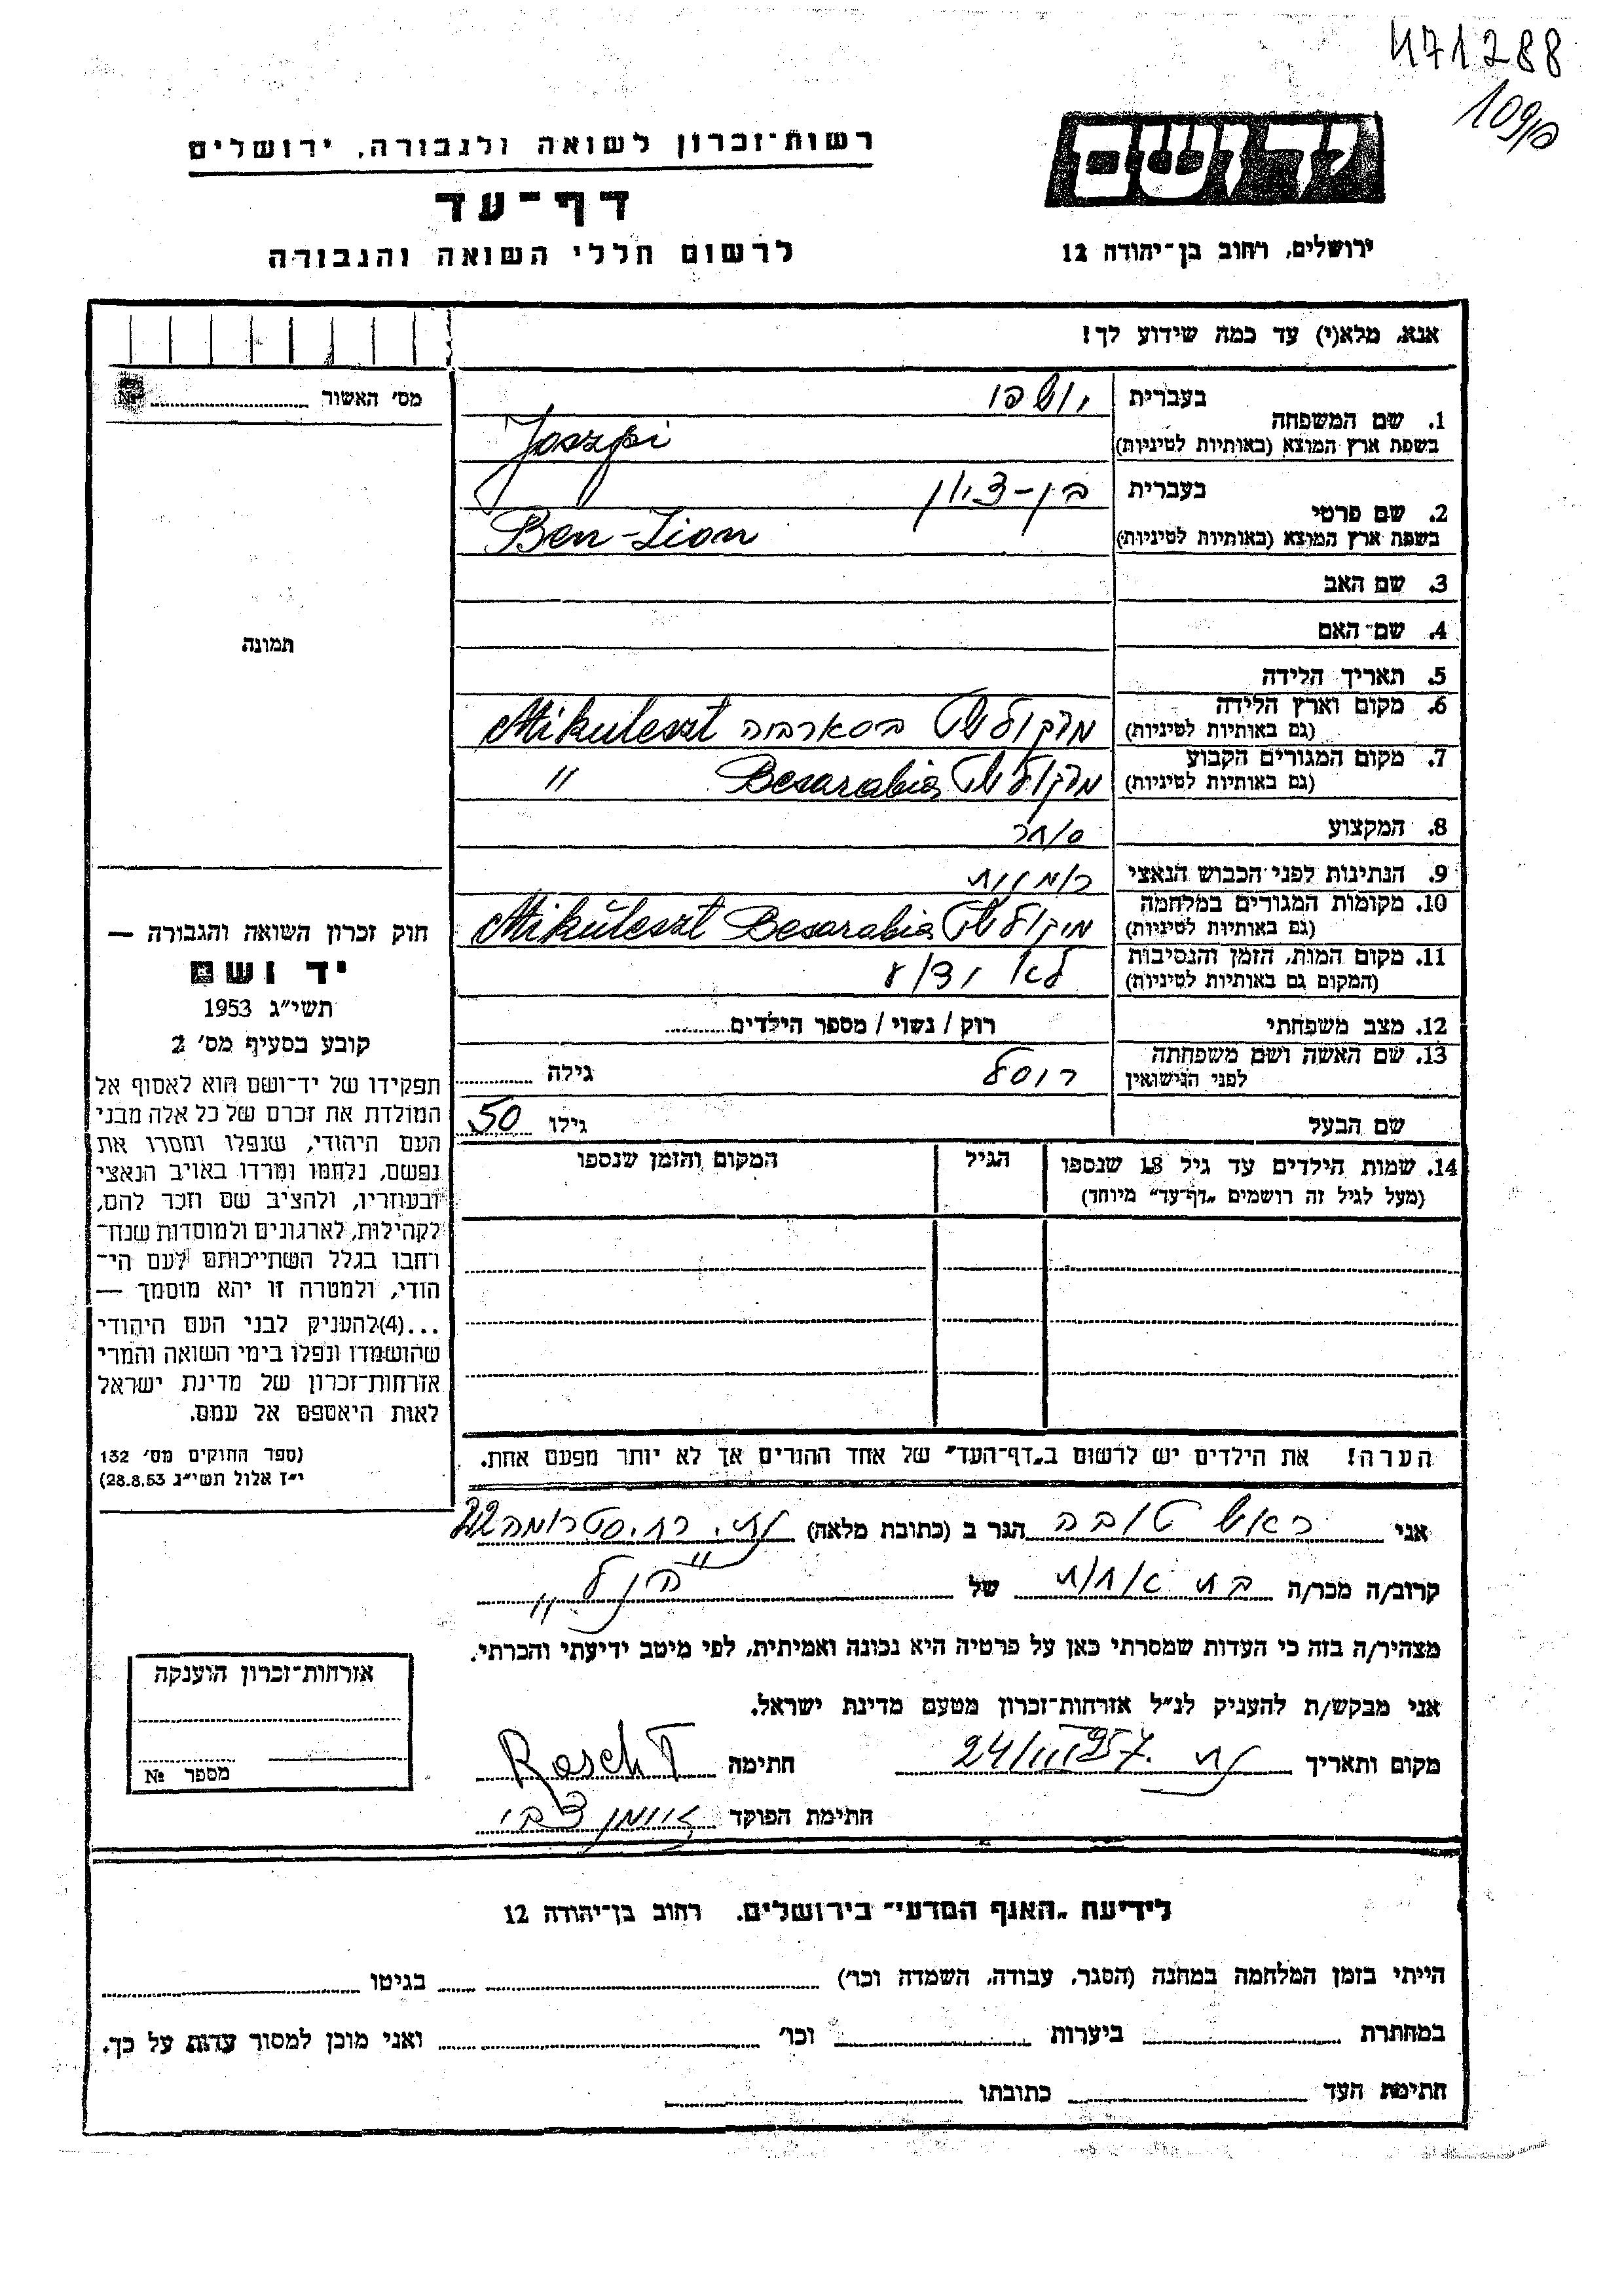 471288
109/פ
רשות־זכרון לשואה ולגבורה, ירושלים
דף־עד
לרשום חללי השואה והגבורה
יד ושם
ירושלים, רחוב בן־יהודה 12
אנא, מלא(י) עד כמה שידוע לך!
מס׳ האשור № 
תמונה
1. שם המשפחה בעברית יושפי
בשפת ארץ המוצא (באותיות לטיניות) Joszpi
2. שם פרטי בעברית בן-ציון
בשפת ארץ המוצא (באותיות לטיניות) Ben-Zion
3. שם האב
4. שם האם
5. תאריך הלידה
6. מקום וארץ הלידה (גם באותיות לטיניות) מיקולשט בסארביה Mikuleszt
7. מקום המגורים הקבוע (גם באותיות לטיניות) מיקולשט Besarabia "
8. המקצוע סוחר
9. הנתינות לפני הכבוש הנאצי רומנית
10. מקומות המגורים במלחמה (גם באותיות לטיניות) מיקולשט Besarabia Mikuleszt
11. מקום המות, הזמן והנסיבות (המקום גם באותיות לטיניות) לא ידוע
12. מצב משפחתי רוק / נשוי / מספר הילדים
13. שם האשה ושם משפחתה לפני הנישואין רוסל גילה
שם הבעל גילו 50
14. שמות הילדים עד גיל 18 שנספו הגיל המקום והזמן שנספו
(מעל לגיל זה רושמים „דף־עד״ מיוחד)
חוק זכרון השואה והגבורה —
יד ושם
תשי״ג 1953
קובע בסעיף מס׳ 2
תפקידו של יד־ושם הוא לאסוף אל
המולדת את זכרם של כל אלה מבני
העם היהודי, שנפלו ומסרו את
נפשם, נלחמו ומרדו באויב הנאצי
ובעוזריו, ולהציב שם וזכר להם,
לקהילות, לארגונים ולמוסדות שנח־
רבו בגלל השתייכותם לעם הי־
הודי, ולמטרה זו יהא מוסמך —
...(4)להעניק לבני העם היהודי
שהושמדו ונפלו בימי השואה והמרי
אזרחות־זכרון של מדינת ישראל
לאות היאספם אל עמם.
(ספר החוקים מס׳ 132
י״ז אלול תשי״ג 28.8.53)
הערה! את הילדים יש לרשום ב„דף־העד״ של אחד ההורים אך לא יותר מפעם אחת.
אני ראש טובה הגר ב (כתובת מלאה) רח. סטרומה 22
קרוב/ה מכר/ה בת אחות של "הנ"ל"
מצהיר/ה בזה כי העדות שמסרתי כאן על פרטיה היא נכונה ואמיתית, לפי מיטב ידיעתי והכרתי.
אני מבקש/ת להעניק לנ״ל אזרחות־זכרון מטעם מדינת ישראל.
מקום ותאריך 24/III 957 חתימה Rosch T
חתימת הפוקד צבי
אזרחות־זכרון הוענקה
מספר №
לידיעת „האגף המדעי״ בירושלים. רחוב בן־יהודה 12
הייתי בזמן המלחמה במחנה (הסגר, עבודה, השמדה וכו׳) בגיטו
במחתרת ביערות וכו׳ ואני מוכן למסור עדות על כך.
חתימת העד כתובתו